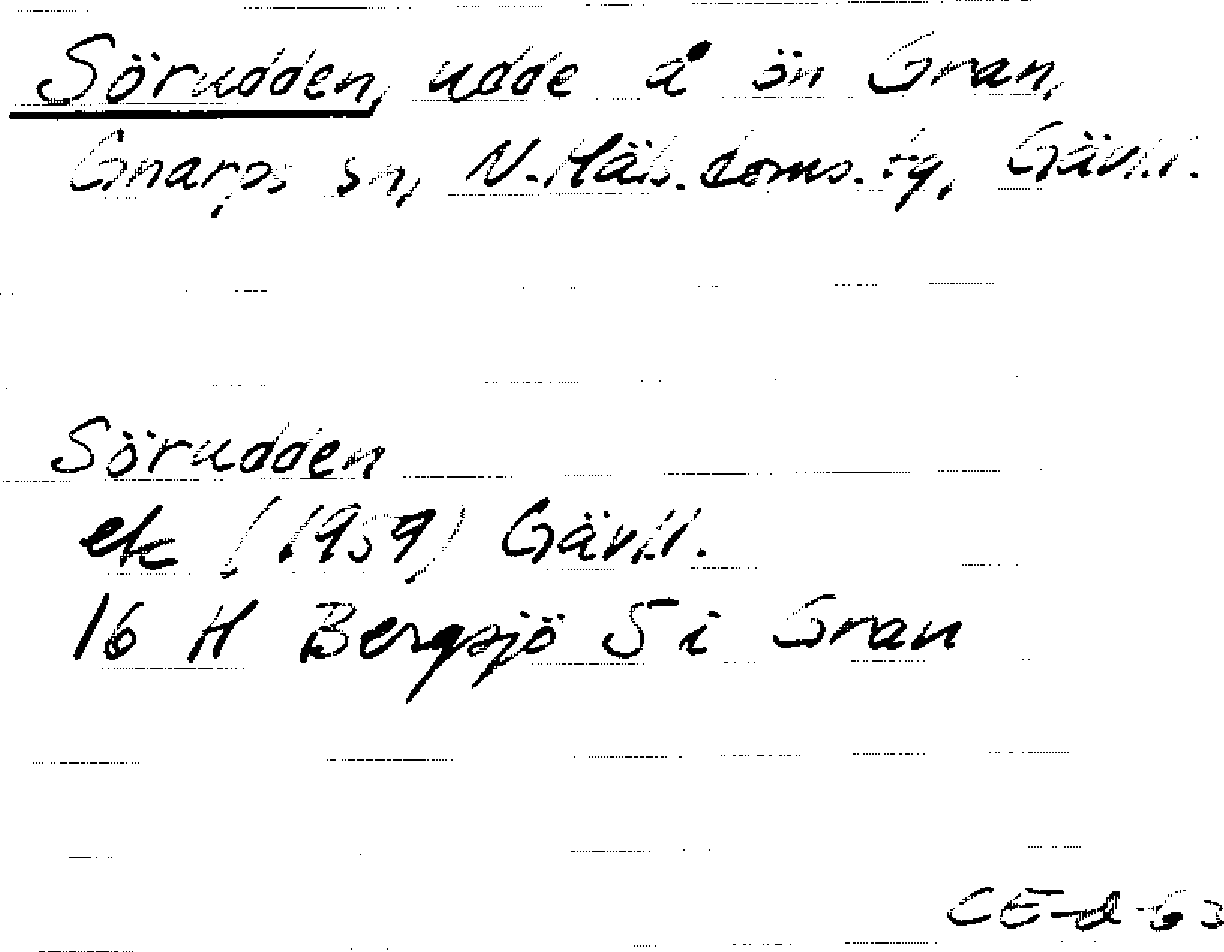 Sörudden, udde å ön Gran,
Gnarps sn, N. Häls. doms. tg, Gävl.l.
Sörudden
ek (1959) Gävl.l.
16 H Bergsjö S i Gran